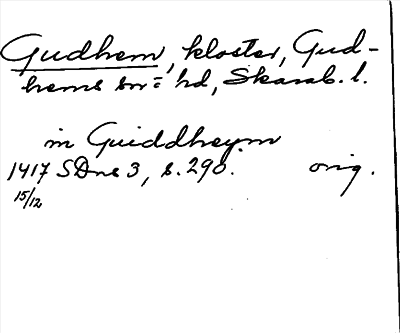 Gudhem, kloster, Gud-
hems sn = hd, Skarab. l.
in Guiddheym
1417 SDns 3, s. 290. orig.
15/12